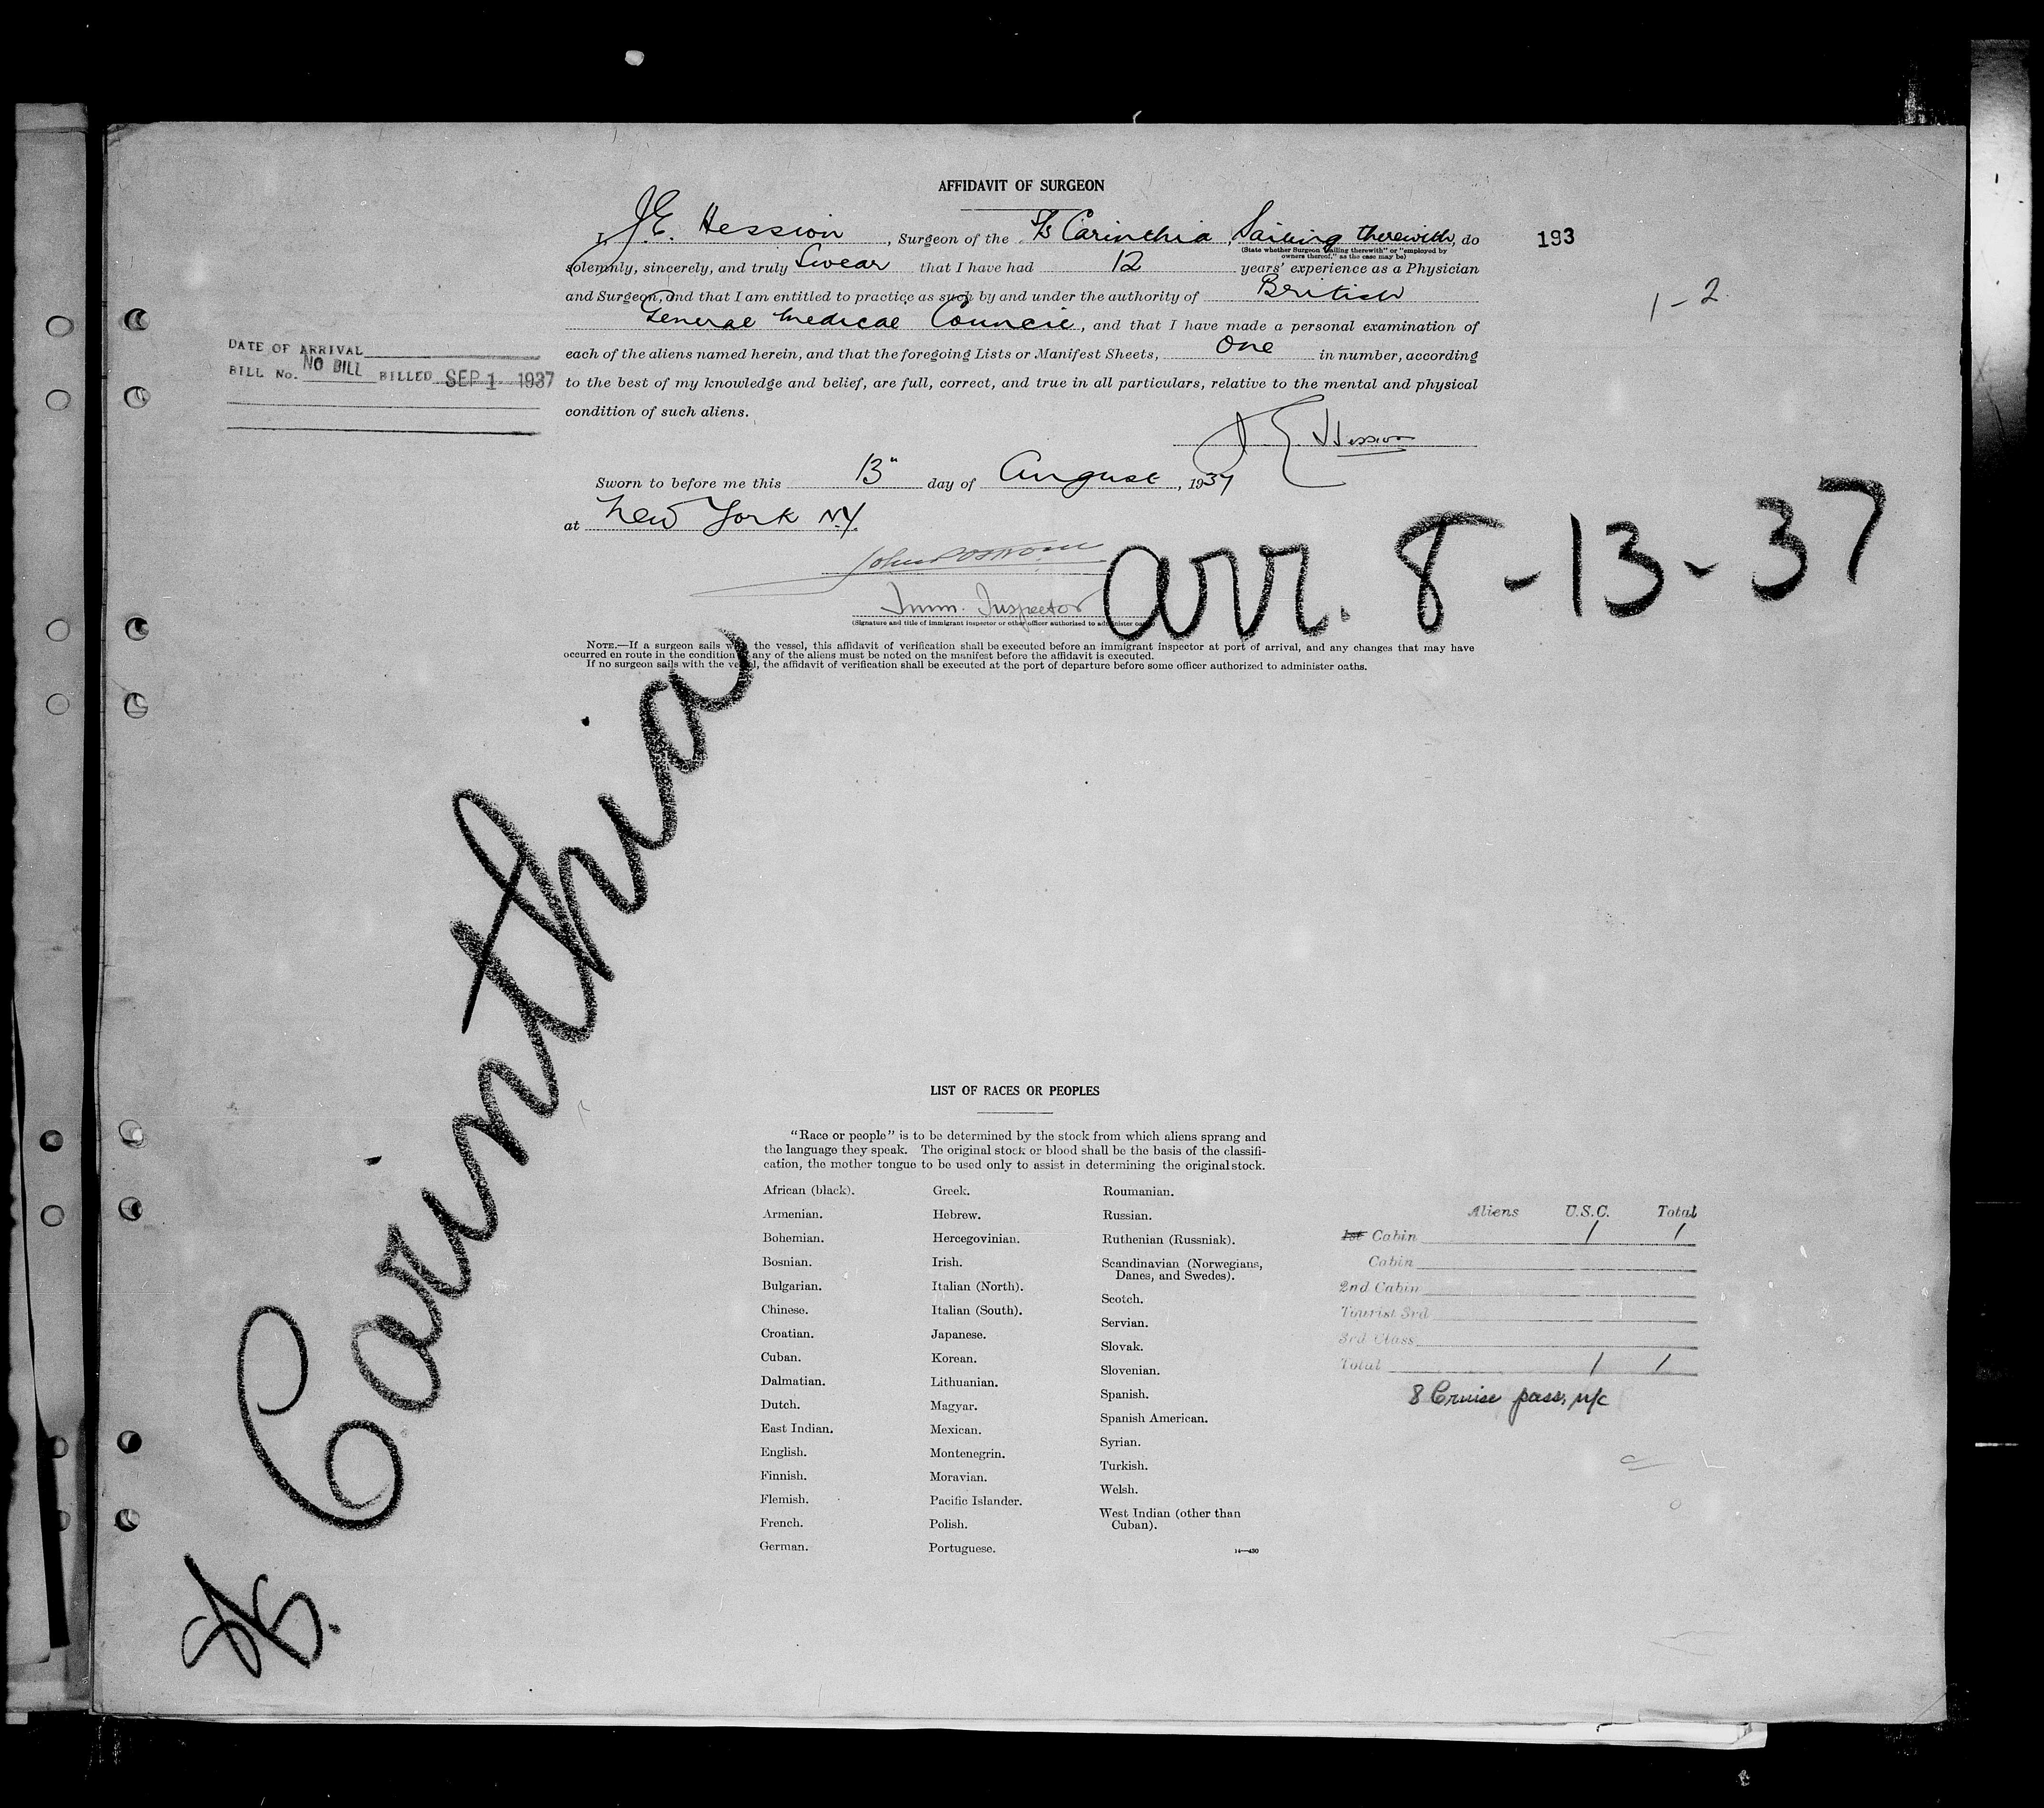 AFFIDAVIT OF SURGEON
I, J.E. Hession, Surgeon of the S/S Carinthia, Sailing therewith, do
193
(State whether Surgeon "sailing therewith" or "employed by
owners thereof," as the case may be)
solemnly, sincerely, and truly Swear that I have had 12 years' experience as a Physician
and Surgeon, and that I am entitled to practice as such by and under the authority of British
1-2
General Medical Council, and that I have made a personal examination of
each of the aliens named herein, and that the foregoing Lists or Manifest Sheets, One in number, according
to the best of my knowledge and belief, are full, correct, and true in all particulars, relative to the mental and physical
condition of such aliens.
DATE OF ARRIVAL
BILL No. NO BILL BILLED SEP 1 1937
J E Hession
Sworn to before me this 13" day of August, 1937
at New York N.Y.
Imm. Inspector
(Signature and title of immigrant inspector or other officer authorized to administer oaths)
arr. 8-13-37
NOTE.—If a surgeon sails with the vessel, this affidavit of verification shall be executed before an immigrant inspector at port of arrival, and any changes that may have
occurred en route in the condition of any of the aliens must be noted on the manifest before the affidavit is executed.
If no surgeon sails with the vessel, the affidavit of verification shall be executed at the port of departure before some officer authorized to administer oaths.
SS. Carinthia
LIST OF RACES OR PEOPLES
"Race or people" is to be determined by the stock from which aliens sprang and
the language they speak. The original stock or blood shall be the basis of the classifi-
cation, the mother tongue to be used only to assist in determining the original stock.
African (black).
Armenian.
Bohemian.
Bosnian.
Bulgarian.
Chinese.
Croatian.
Cuban.
Dalmatian.
Dutch.
East Indian.
English.
Finnish.
Flemish.
French.
German.
Greek.
Hebrew.
Hercegovinian.
Irish.
Italian (North).
Italian (South).
Japanese.
Korean.
Lithuanian.
Magyar.
Mexican.
Montenegrin.
Moravian.
Pacific Islander.
Polish.
Portuguese.
Roumanian.
Russian.
Ruthenian (Russniak).
Scandinavian (Norwegians,
Danes, and Swedes).
Scotch.
Servian.
Slovak.
Slovenian.
Spanish.
Spanish American.
Syrian.
Turkish.
Welsh.
West Indian (other than
Cuban).
14—430
Aliens U.S.C. Total
1st Cabin 1 1
Cabin
2nd Cabin
Tourist 3rd
3rd Class
Total 1 1
8 Cruise pass, n/c